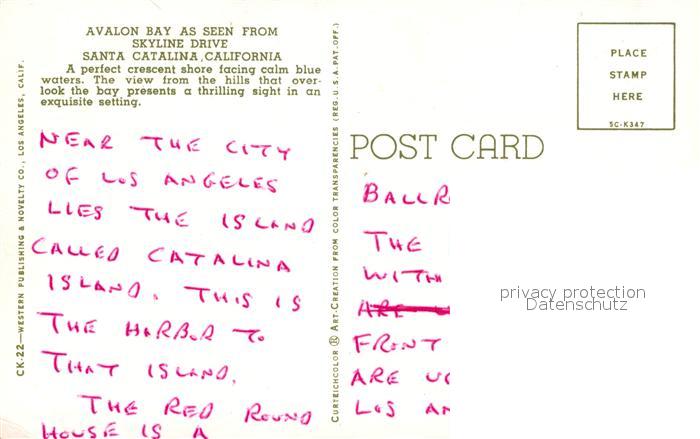 AVALON BAY AS SEEN FROM
SKYLINE DRIVE
SANTA CATALINA, CALIFORNIA
A perfect crescent shore facing calm blue
waters. The view from the hills that over-
look the bay presents a thrilling sight in an
exquisite setting.
NEAR THE CITY
OF LOS ANGELES
LIES THE ISLAND
CALLED CATALINA
ISLAND. THIS IS
THE HARBOR TO
THAT ISLAND.
THE RED ROUND
HOUSE IS A
CK-22—WESTERN PUBLISHING & NOVELTY CO., LOS ANGELES, CALIF.
CURTEICHCOLOR ® ART-CREATION FROM COLOR TRANSPARENCIES (REG. U.S.A. PAT. OFF.)
POST CARD
PLACE
STAMP
HERE
5C-K347
BALLR
THE
WITH
ARE
FRONT
ARE
LOS AN
privacy protection
Datenschutz